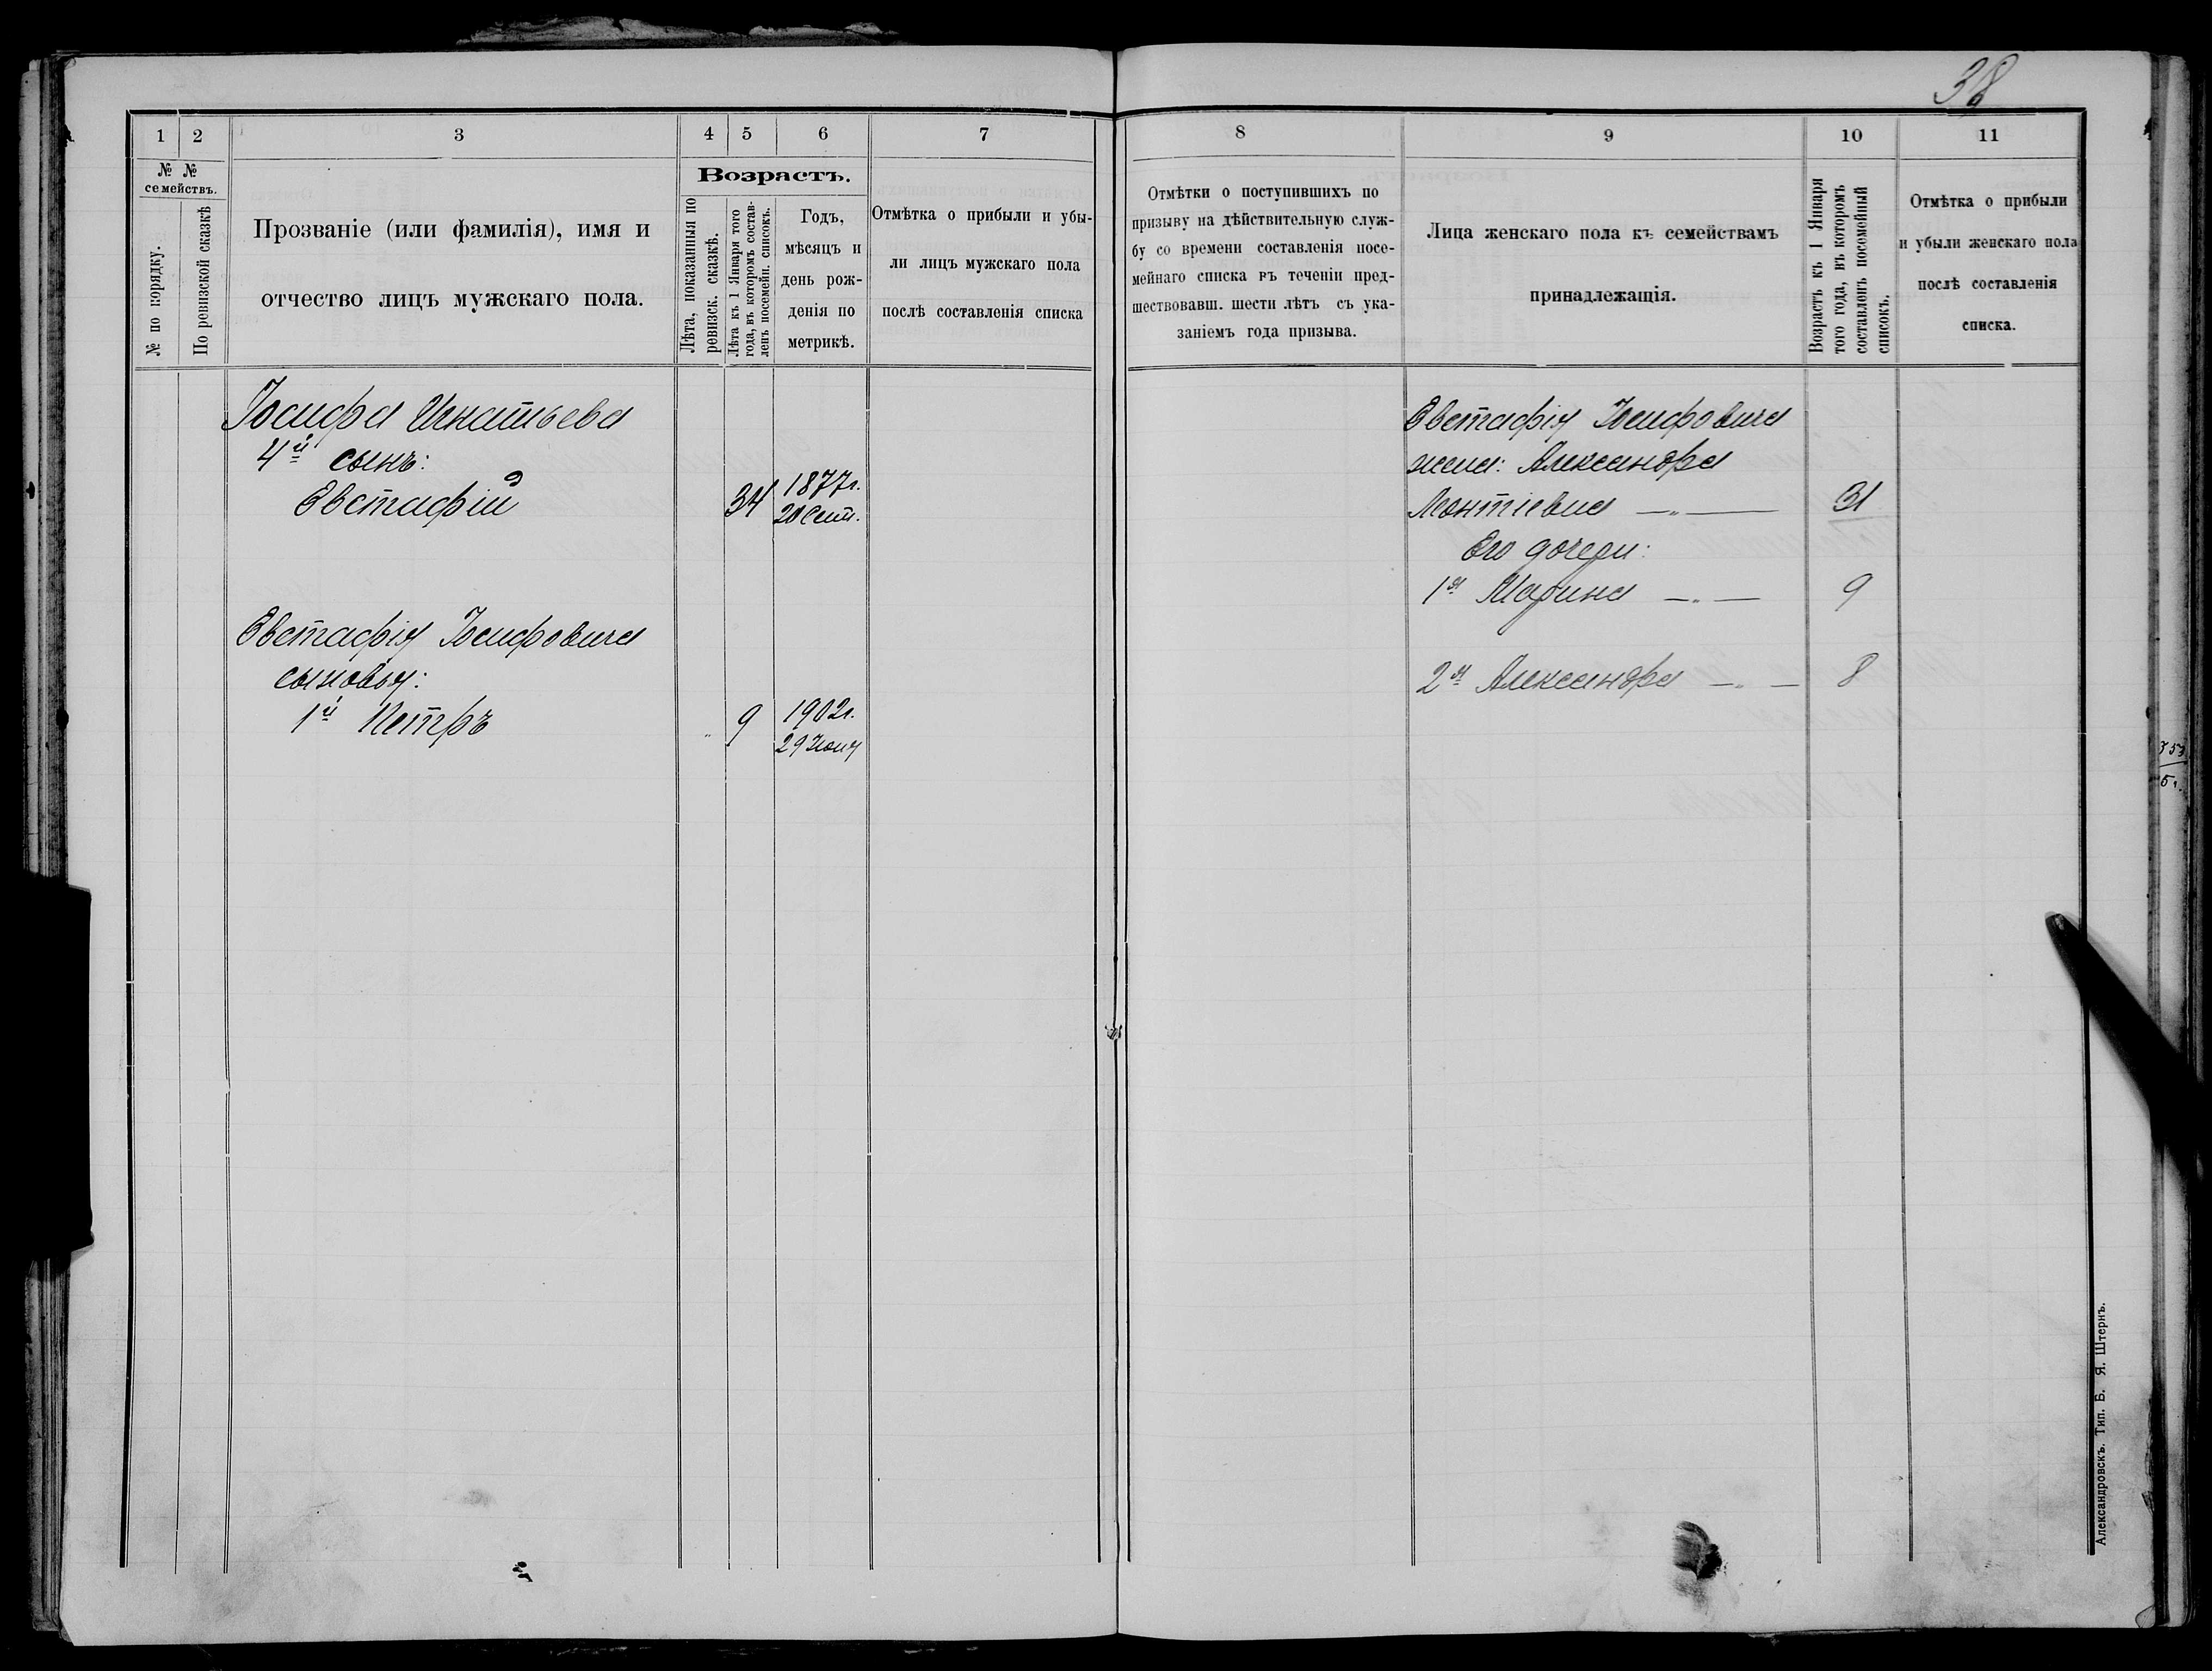 38
1 2 3 4 5 6 7
№ № семействъ.
№ по порядку.
По ревизской сказкѣ
Прозваніе (или фамилія), имя и
отчество лицъ мужскаго пола.
Возрастъ.
Лѣта, показанныя по
ревизск. сказкѣ.
Лѣта къ 1 Января того
года, въ которомъ состав-
ленъ посемейн. списокъ.
Годъ,
мѣсяцъ и
день рож-
денія по
метрикѣ.
Отмѣтка о прибыли и убы-
ли лицъ мужскаго пола
послѣ составленія списка
Іосифа Игнатьева
4й сынъ:
Евстафій 34 1877г.
20 Сент.
Евстафія Іосифовича
сыновья:
1й Петръ " 9 1902г.
29 Іюня
8 9 10 11
Отмѣтки о поступившихъ по
призыву на дѣйствительную служ-
бу со времени составленія посе-
мейнаго списка въ теченіи пред-
шествовавш. шести лѣтъ съ ука-
заніемъ года призыва.
Лица женскаго пола къ семействамъ
принадлежащія.
Возрастъ къ 1 Января
того года, въ которомъ
составленъ посемейный
списокъ.
Отмѣтка о прибыли
и убыли женскаго пола
послѣ составленія
списка.
Евстафія Іосифовича
жена: Александра
Леонтіевна — " — 31
Его дочери:
1я Марина — " — 9
2я Александра — " — 8
353
5 г.
Александровскъ. Тип. Б. Я. Штернъ.